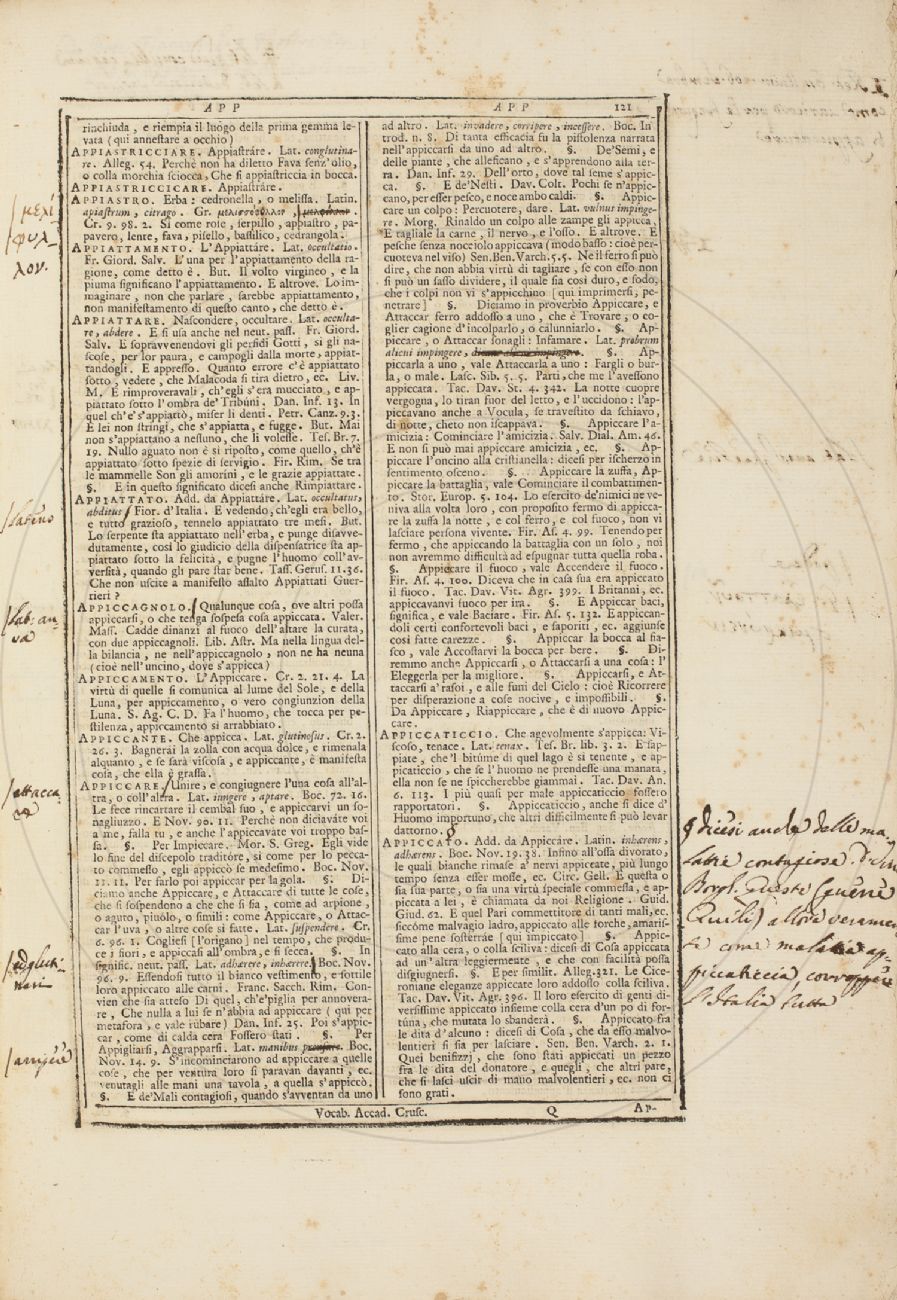 APP
APP 121
rinchiuda , e riempia il luogo della prima gemma le-
vata (qui annestare a occhio)
APPIASTRICCIARE. Appiastráre. Lat. conglutina-
re. Alleg. 54. Perchè non ha diletto Fava senz'olio,
o colla morchia sciocca, Che si appiastriccia in bocca.
APPIASTRICCICARE. Appiastráre.
APPIASTRO. Erba : cedronella , o melissa. Latin.
apiastrum, citrago. Gr. μελισσόφυλλον ,
Cr. 9. 98. 2. Si come rose , serpillo , appiastro , pa-
pavero, lente, fava, pisello, bassilico, cedrangola.
APPIATTAMENTO. L'Appiattáre. Lat. occultatio.
Fr. Giord. Salv. L'una per l'appiattamento della ra-
gione, come detto è. But. Il volto virgineo , e la
piuma significano l'appiattamento. E altrove. Lo im-
maginare , non che parlare , sarebbe appiattamento,
non manifestamento di questo canto, che detto è.
APPIATTARE. Nascondere, occultare. Lat. occulta-
re, abdere. E si usa anche nel neut. pass. Fr. Giord.
Salv. E sopravvenendovi gli perfidi Gotti, si gli na-
scose, per lor paura, e campogli dalla morte, appiat-
tandogli. E appresso. Quanto errore c'è appiattato
sotto , vedete , che Malacoda si tira dietro, ec. Liv.
M. E rimproveravali , ch'egli s'era mucciato , e ap-
piattato sotto l'ombra de' Tribúni. Dan. Inf. 13. In
quel ch'e' s'appiattò, miser li denti. Petr. Canz. 9.3.
E lei non stringi, che s'appiatta, e fugge. But. Mai
non s'appiattano a nessuno, che li volesse. Tes. Br. 7.
19. Nullo aguato non è si riposto, come quello, ch'è
appiattato sotto spezie di servigio. Fir. Rim. Se tra
le mammelle Son gli amorini , e le grazie appiattate.
§. E in questo significato dicesi anche Rimpiattare.
APPIATTATO. Add. da Appiattáre. Lat. occultatus,
abditus Fior. d'Italia. E vedendo, ch'egli era bello,
e tutto grazioso, tennelo appiattato tre mesi. But.
Lo serpente sta appiattato nell'erba, e punge disavve-
dutamente, così lo giudicio della dispensatrice sta ap-
piattato sotto la felicità, e pugne l'huomo coll'av-
versità, quando gli pare star bene. Tass. Gerus. 11.36.
Che non uscite a manifesto assalto Appiattati Guer-
rieri ?
APPICCAGNOLO. Qualunque cosa, ove altri possa
appiccarsi, o che tenga sospesa cosa appiccata. Valer.
Mass. Cadde dinanzi al fuoco dell'altare la curata,
con due appiccagnoli. Lib. Astr. Ma nella lingua del-
la bilancia , ne nell'appiccagnolo , non ne ha neuna
(cioè nell'uncino, dove s'appicca)
APPICCAMENTO. L'Appiccare. Cr. 2. 21. 4. La
virtù di quelle si comunica al lume del Sole, e della
Luna, per appiccamento, o vero congiunzion della
Luna. S. Ag. C. D. Fa l'huomo, che tocca per pe-
stilenza, appiccamento si arrabbiato.
APPICCANTE. Che appicca. Lat. glutinosus. Cr. 2.
26. 3. Bagnerai la zolla con acqua dolce, e rimenala
alquanto , e se sarà viscosa , e appiccante, è manifesta
cosa, che ella è grassa.
APPICCARE. Unire, e congiugnere l'una cosa all'al-
tra, o coll'altra. Lat. iungere , aptare. Boc. 72. 16.
Le fece rincartare il cembal suo , e appiccarvi un so-
nagliuzzo. E Nov. 90. 11. Perchè non diciavâte voi
a me, falla tu , e anche l'appiccavate voi troppo bas-
sa. §. Per Impiccare. Mor. S. Greg. Egli vide
lo fine del discepolo traditóre, si come per lo pecca-
to commesso, egli appiccò se medesimo. Boc. Nov.
11. 11. Per farlo poi appiccar per la gola. §. Di-
ciamo anche Appiccare, e Attaccare di tutte le cose,
che si sospendono a che che si sia , come ad arpione ,
o aguto, piuólo, o simili : come Appiccare, o Attac-
car l'uva , o altre cose si fatte. Lat. suspendere. Cr.
6. 96. 1. Cogliesi [l'origano] nel tempo, che produ-
ce i fiori, e appiccasi all'ombra, e si secca. §. In
signific. neut. pass. Lat. adhærere, inhærere. Boc. Nov.
96. 9. Essendosi tutto il bianco vestimento, e sottile
loro appiccato alle carni. Franc. Sacch. Rim. Con-
vien che sia atteso Di quel, ch'e' piglia per annovera-
re , Che nulla a lui se n'abbia ad appiccare ( qui per
metafora , e vale rubare) Dan. Inf. 25. Poi s'appic-
car , come di calda cera Fossero stati . §. Per
Appigliarsi, Aggrapparsi. Lat. manibus Boc.
Nov. 14. 9. S'incominciarono ad appiccare a quelle
cose , che per ventura loro si paravan davanti , ec.
venutagli alle mani una tavola, a quella s'appiccò.
§. E de' Mali contagiosi, quando s'avventan da uno
ad altro. Lat. invadere, corripere, incessere. Boc. In
trod. n. 8. Di tanta efficacia fu la pistolenza narrata
nell'appiccarsi da uno ad altro. §. De'Semi, e
delle piante , che alleficano , e s'apprendono alla ter-
ra. Dan. Inf. 29. Dell'orto, dove tal seme s'appic-
ca. §. E de' Nesti. Dav. Colt. Pochi se n'appic-
cano, per esser pesco, e noce ambo caldi. §. Appic-
care un colpo : Percuotere, dare. Lat. vulnus impinge-
re. Morg. Rinaldo un colpo alle zampe gli appicca,
E tagliale la carne , il nervo , e l'osso. E altrove. E
pesche senza nocciolo appiccava (modo basso : cioè per-
cuoteva nel viso) Sen. Ben. Varch. 5.5. Ne il ferro si può
dire, che non abbia virtù di tagliare, se con esso non
si può un sasso dividere, il quale sia così duro, e sodo,
che i colpi non vi s'appicchino [qui imprimersi, pe-
netrare] §. Diciamo in proverbio Appiccare, e
Attaccar ferro addosso a uno , che è Trovare , o co-
glier cagione d'incolparlo, o calunniarlo. §. Ap-
piccare , o Attaccar sonagli : Infamare. Lat. probrum
alicui impingere, §. Ap-
piccarla a uno , vale Attaccarla a uno : Fargli o bur-
la, o male. Lasc. Sib. 5. 5. Parti, che me l'avessono
appiccata. Tac. Dav. St. 4. 342. La notte cuopre
vergogna, lo tiran fuor del letto, e l'uccidono : l'ap-
piccavano anche a Vocula, se travestito da schiavo,
di notte, cheto non iscappava. §. Appiccare l'a-
micizia : Cominciare l'amicizia. Salv. Dial. Am. 46.
E non si può mai appiccare amicizia , ec. §. Ap-
piccare l'oncino alla cristianella : dicesi per ischerzo in
sentimento osceno. §. Appiccare la zuffa, Ap-
piccare la battaglia, vale Cominciare il combattimen-
to. Stor. Europ. 5. 104. Lo esercito de' nimici ne ve-
niva alla volta loro , con proposito fermo di appicca-
re la zuffa la notte , e col ferro, e col fuoco, non vi
lasciare persona vivente. Fir. As. 4. 99. Tenendo per
fermo , che appiccando la battaglia con un solo , noi
non avremmo difficultà ad espugnar tutta quella roba.
§. Appiccare il fuoco , vale Accendere il fuoco.
Fir. As. 4. 100. Diceva che in casa sua era appiccato
il fuoco. Tac. Dav. Vit. Agr. 399. I Britanni, ec.
appiccavanvi fuoco per ira. §. E Appiccar baci,
significa, e vale Baciare. Fir. As. 5. 132. E appiccan-
doli certi confortevoli baci, e saporiti, ec. aggiunse
così fatte carezze. §. Appiccar la bocca al fia-
sco , vale Accostarvi la bocca per bere. §. Di-
remmo anche Appiccarsi , o Attaccarsi a una cosa : l'
Eleggerla per la migliore. §. Appiccarsi, e At-
taccarsi a' rasoi , e alle funi del Cielo : cioè Ricorrere
per disperazione a cose nocive , e impossibili. §.
Da Appiccare , Riappiccare , che è di nuovo Appic-
care.
APPICCATICCIO. Che agevolmente s'appicca: Vi-
scoso, tenace. Lat. tenax. Tes. Br. lib. 3. 2. E sap-
piate , che 'l bitúme di quel lago è si tenente , e ap-
picaticcio , che se l'huomo ne prendesse una manata,
ella non se ne spiccherebbe giammai. Tac. Dav. An.
6. 113. I più quasi per male appiccaticcio fossero
rapportatori. §. Appiccaticcio, anche si dice d'
Huomo importuno, che altri difficilmente si può levar
dattorno.
APPICCATO. Add. da Appiccáre. Latin. inhærens,
adhærens. Boc. Nov. 19. 38. Infino all'ossa divorato,
le quali bianche rimase a' nervi appiccate, più lungo
tempo senza esser mosse, ec. Circ. Gell. E questa o
sia sua parte, o sia una virtù speciale commessa, e ap-
piccata a lei , è chiamata da noi Religione . Guid.
Giud. 62. E quel Pari commettitore di tanti mali, ec.
siccóme malvagio ladro, appiccato alle forche, amaris-
sime pene sosterráe [qui impiccato] §. Appic-
cato alla cera, o colla sciliva : dicesi di Cosa appiccata
ad un'altra leggiermente , e che con facilità possa
disgiugnersi. §. E per similit. Alleg. 321. Le Cice-
roniane eleganze appiccate loro addosso colla sciliva.
Tac. Dav. Vit. Agr. 396. Il loro esercito di genti di-
versissime appiccato insieme colla cera d'un po di for-
túna, che mutata lo sbanderà. §. Appiccato fra
le dita d'alcuno : dicesi di Cosa , che da esso malvo-
lentieri si sia per lasciare. Sen. Ben. Varch. 2. 1.
Quei benifizj , che sono stati appiccati un pezzo
fra le dita del donatore , e quegli , che altri pare,
che si lasci uscir di mano malvolentieri, ec. non ci
sono grati.
Vocab. Accad. Crusc. Q Ap-
μελί
φυλ
λον.
latino
Lab: an-
sa
attacca
adgluti-
nari
arripere
§ dicesi anche delle ma-
lattie contagiose.
Borgh. Queste guerre
allora veramen-
te come malatia ap-
piccaticcia corroppero
l'Italia tutta